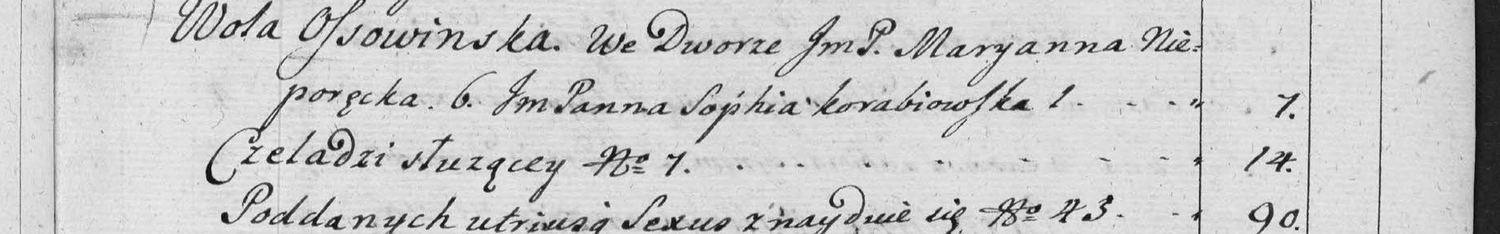 Wola Ossowinska. We Dworze JmP. Maryanna Nie=
poręcka. 6. Jm Panna Sophia korabiowska 1. - - - " 7.
Czeladzi służącey No 7. - - - - - - - " 14.
Poddanych utriusq Sexus znayduie się No 43. - " 90.